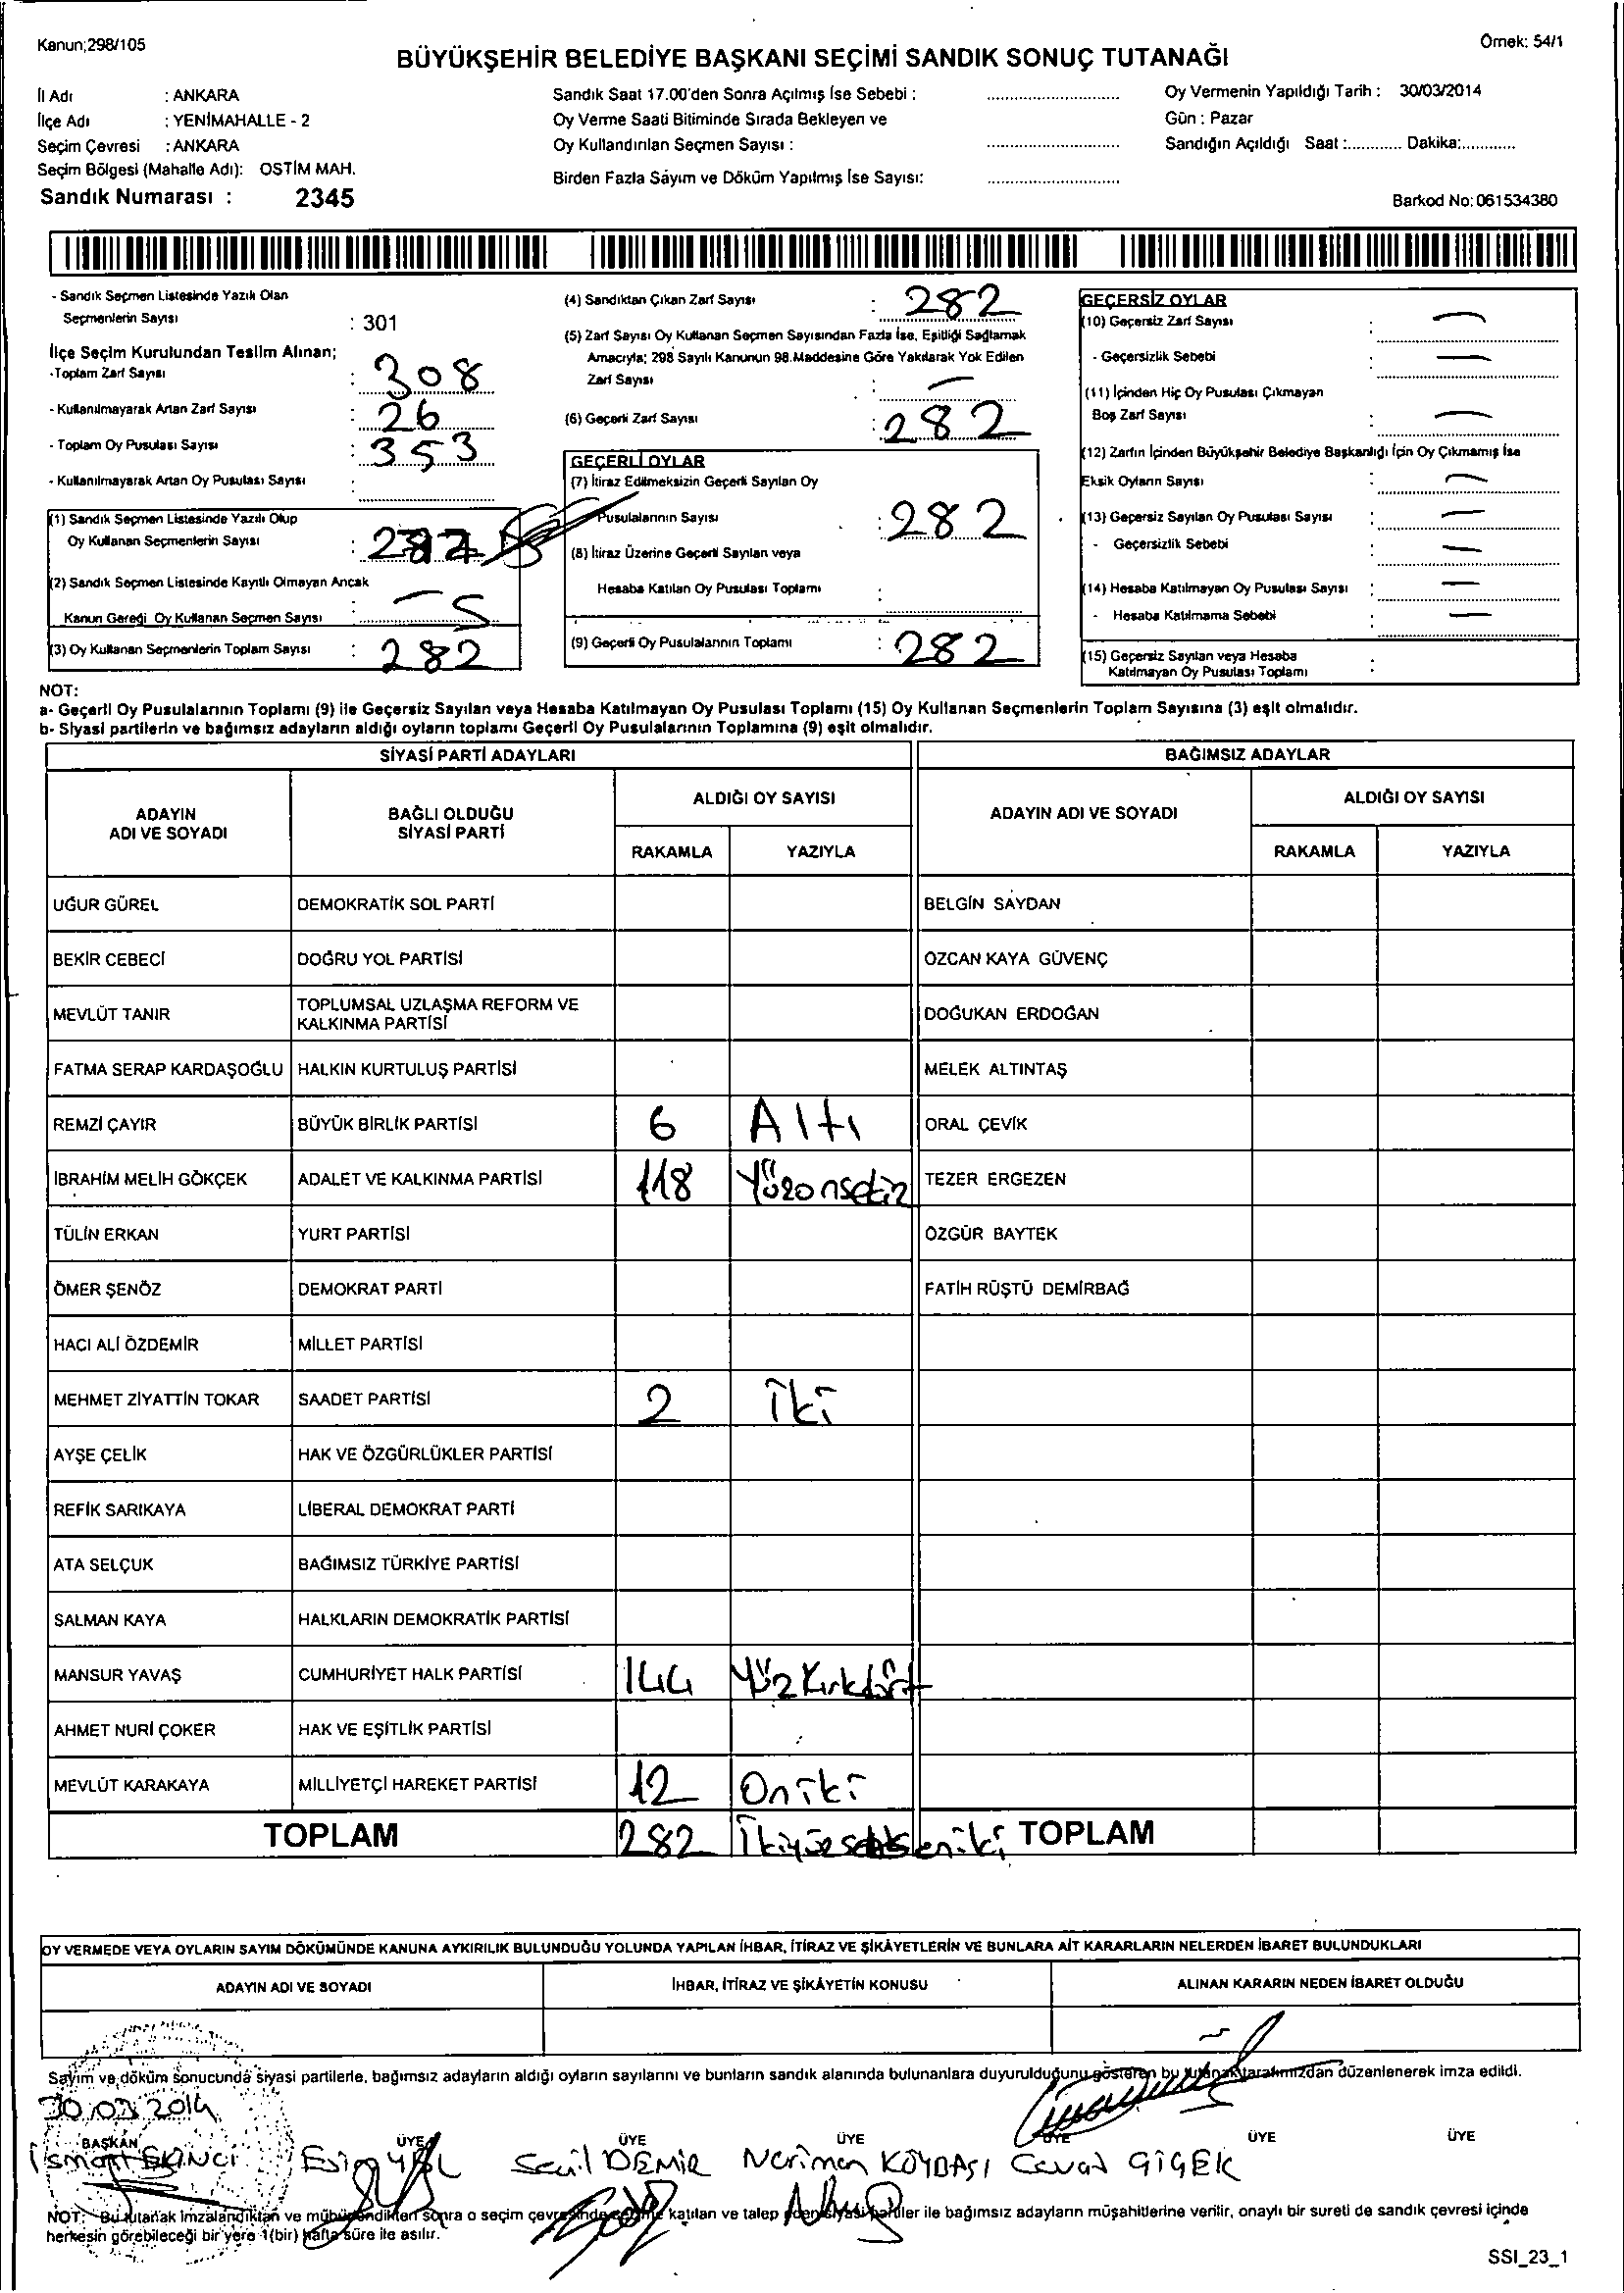 Kanun;298/105
Örnek: 54/1
BÜYÜKŞEHİR BELEDİYE BAŞKANI SEÇİMİ SANDIK SONUÇ TUTANAĞI
İl Adı : ANKARA
İlçe Adı : YENİMAHALLE - 2
Seçim Çevresi : ANKARA
Seçim Bölgesi (Mahalle Adı): OSTİM MAH.
Sandık Numarası : 2345
Sandık Saat 17.00'den Sonra Açılmış İse Sebebi :
Oy Verme Saati Bitiminde Sırada Bekleyen ve
Oy Kullandırılan Seçmen Sayısı :
Birden Fazla Sayım ve Döküm Yapılmış İse Sayısı:
Oy Vermenin Yapıldığı Tarih : 30/03/2014
Gün : Pazar
Sandığın Açıldığı Saat :............ Dakika:............
Barkod No: 061534380
- Sandık Seçmen Listesinde Yazılı Olan
Seçmenlerin Sayısı : 301
İlçe Seçim Kurulundan Teslim Alınan;
-Toplam Zarf Sayısı : 308
- Kullanılmayarak Artan Zarf Sayısı : 26
- Toplam Oy Pusulası Sayısı : 353
- Kullanılmayarak Artan Oy Pusulası Sayısı :
(1) Sandık Seçmen Listesinde Yazılı Olup
Oy Kullanan Seçmenlerin Sayısı :
(2) Sandık Seçmen Listesinde Kayıtlı Olmayan Ancak
Kanun Gereği Oy Kullanan Seçmen Sayısı : 5
(3) Oy Kullanan Seçmenlerin Toplam Sayısı : 282
(4) Sandıktan Çıkan Zarf Sayısı : 282
(5) Zarf Sayısı Oy Kullanan Seçmen Sayısından Fazla İse, Eşitliği Sağlamak
Amacıyla; 298 Sayılı Kanunun 98.Maddesine Göre Yakılarak Yok Edilen
Zarf Sayısı : —
(6) Geçerli Zarf Sayısı : 282
GEÇERLİ OYLAR
(7) İtiraz Edilmeksizin Geçerli Sayılan Oy
Pusulalarının Sayısı : 282
(8) İtiraz Üzerine Geçerli Sayılan veya
Hesaba Katılan Oy Pusulası Toplamı :
(9) Geçerli Oy Pusulalarının Toplamı : 282
GEÇERSİZ OYLAR
(10) Geçersiz Zarf Sayısı : —
- Geçersizlik Sebebi : —
(11) İçinden Hiç Oy Pusulası Çıkmayan
Boş Zarf Sayısı : —
(12) Zarfın İçinden Büyükşehir Belediye Başkanlığı İçin Oy Çıkmamış İse
Eksik Oyların Sayısı : —
(13) Geçersiz Sayılan Oy Pusulası Sayısı : —
- Geçersizlik Sebebi : —
(14) Hesaba Katılmayan Oy Pusulası Sayısı : —
- Hesaba Katılmama Sebebi : —
(15) Geçersiz Sayılan veya Hesaba
Katılmayan Oy Pusulası Toplamı :
NOT:
a- Geçerli Oy Pusulalarının Toplamı (9) ile Geçersiz Sayılan veya Hesaba Katılmayan Oy Pusulası Toplamı (15) Oy Kullanan Seçmenlerin Toplam Sayısına (3) eşit olmalıdır.
b- Siyasi partilerin ve bağımsız adayların aldığı oyların toplamı Geçerli Oy Pusulalarının Toplamına (9) eşit olmalıdır.
SİYASİ PARTİ ADAYLARI BAĞIMSIZ ADAYLAR
ADAYIN
ADI VE SOYADI
BAĞLI OLDUĞU
SİYASİ PARTİ
ALDIĞI OY SAYISI
RAKAMLA YAZIYLA
ADAYIN ADI VE SOYADI
ALDIĞI OY SAYISI
RAKAMLA YAZIYLA
UĞUR GÜREL DEMOKRATİK SOL PARTİ BELGİN SAYDAN
BEKİR CEBECİ DOĞRU YOL PARTİSİ ÖZCAN KAYA GÜVENÇ
MEVLÜT TANIR TOPLUMSAL UZLAŞMA REFORM VE
KALKINMA PARTİSİ DOĞUKAN ERDOĞAN
FATMA SERAP KARDAŞOĞLU HALKIN KURTULUŞ PARTİSİ MELEK ALTINTAŞ
REMZİ ÇAYIR BÜYÜK BİRLİK PARTİSİ 6 Altı ORAL ÇEVİK
İBRAHİM MELİH GÖKÇEK ADALET VE KALKINMA PARTİSİ 118 Yüzonsekiz TEZER ERGEZEN
TÜLİN ERKAN YURT PARTİSİ ÖZGÜR BAYTEK
ÖMER ŞENÖZ DEMOKRAT PARTİ FATİH RÜŞTÜ DEMİRBAĞ
HACI ALİ ÖZDEMİR MİLLET PARTİSİ
MEHMET ZİYATTİN TOKAR SAADET PARTİSİ 2 İki
AYŞE ÇELİK HAK VE ÖZGÜRLÜKLER PARTİSİ
REFİK SARIKAYA LİBERAL DEMOKRAT PARTİ
ATA SELÇUK BAĞIMSIZ TÜRKİYE PARTİSİ
SALMAN KAYA HALKLARIN DEMOKRATİK PARTİSİ
MANSUR YAVAŞ CUMHURİYET HALK PARTİSİ 144 YüzKırkdört
AHMET NURİ ÇOKER HAK VE EŞİTLİK PARTİSİ
MEVLÜT KARAKAYA MİLLİYETÇİ HAREKET PARTİSİ 12 Oniki
TOPLAM 282 İkiyüzsekseniki TOPLAM
OY VERMEDE VEYA OYLARIN SAYIM DÖKÜMÜNDE KANUNA AYKIRILIK BULUNDUĞU YOLUNDA YAPILAN İHBAR, İTİRAZ VE ŞİKÂYETLERİN VE BUNLARA AİT KARARLARIN NELERDEN İBARET BULUNDUKLARI
ADAYIN ADI VE SOYADI İHBAR, İTİRAZ VE ŞİKÂYETİN KONUSU ALINAN KARARIN NEDEN İBARET OLDUĞU
Sayım ve döküm sonucunda siyasi partilerle, bağımsız adayların aldığı oyların sayılarını ve bunların sandık alanında bulunanlara duyurulduğunu gösteren bu tutanak tarafımızdan düzenlenerek imza edildi.
30.03.2014
BAŞKAN ÜYE ÜYE ÜYE ÜYE ÜYE ÜYE
İsmail EKİNCİ Sevil DEMİR Neriman KÖYBAŞI ÇİÇEK
NOT: Bu tutanak imzalandıktan ve mühürlendikten sonra o seçim çevresinde seçime katılan ve talep eden siyasi partiler ile bağımsız adayların müşahitlerine verilir, onaylı bir sureti de sandık çevresi içinde
herkesin görebileceği bir yere 1(bir) hafta süre ile asılır.
SSI_23_1